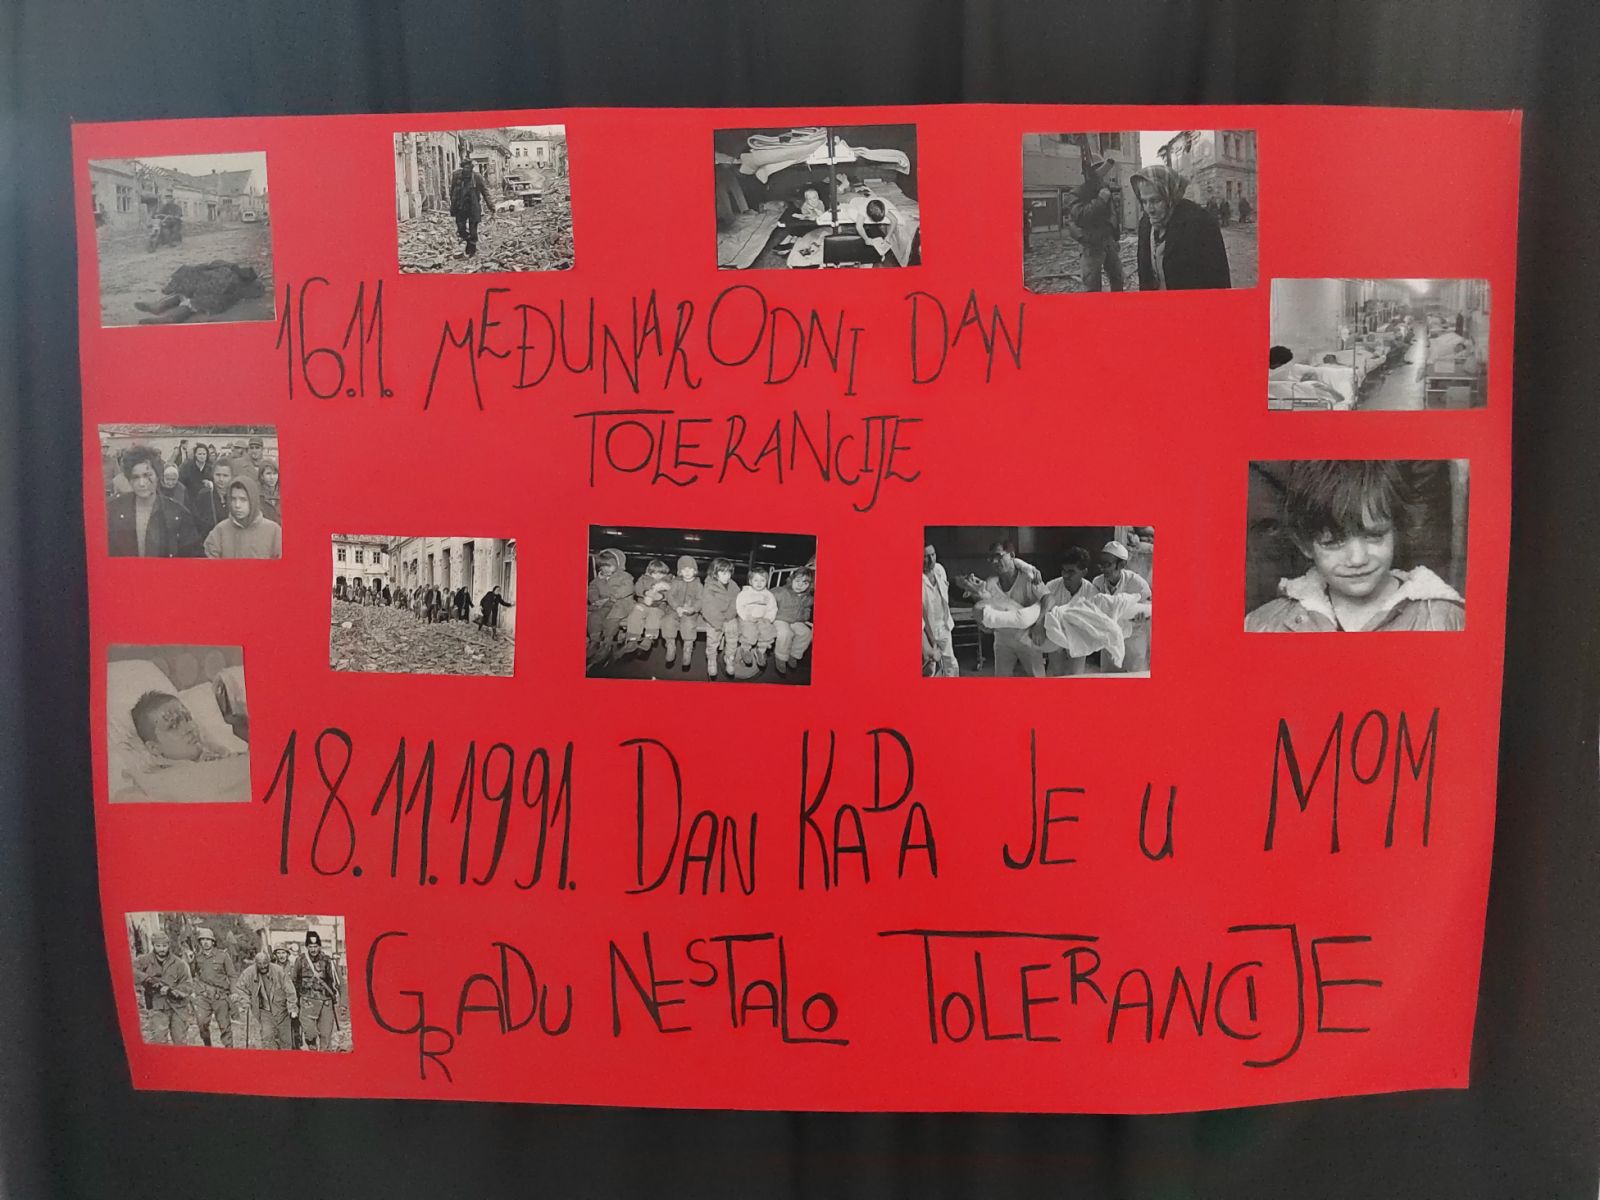 16.11. MEĐUNARODNI DAN
TOLERANCIJE
18.11.1991. DAN KADA JE U MOM
GRADU NESTALO TOLERANCIJE